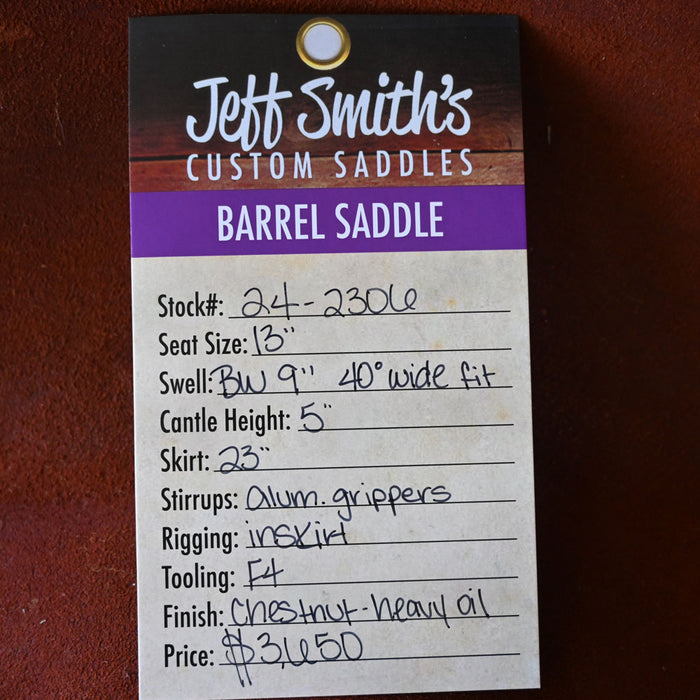 Jeff Smith's
CUSTOM SADDLES
BARREL SADDLE
Stock#: 24-2306
Seat Size: 13"
Swell: BW 9" 40° wide fit
Cantle Height: 5"
Skirt: 23"
Stirrups: alum. grippers
Rigging: inskirt
Tooling: F4
Finish: Chestnut-heavy oil
Price: $3,650